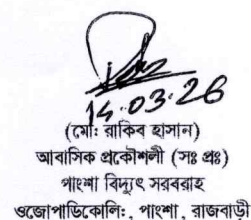 14.03.26
(মোঃ রাকিব হাসান)
আবাসিক প্রকৌশলী (সঃ প্রঃ)
পাংশা বিদ্যুৎ সরবরাহ
ওজোপাডিকোলি:, পাংশা, রাজবাড়ী